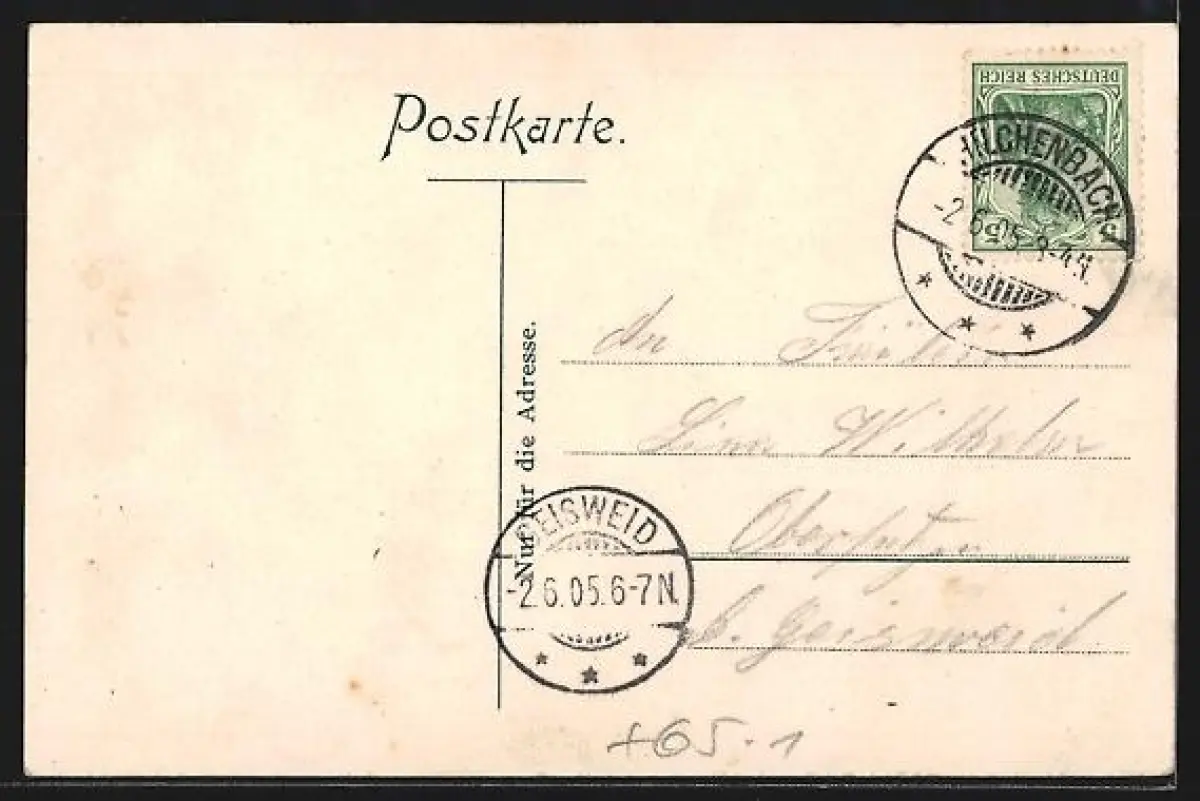 Postkarte.
DEUTSCHES REICH
5
HILCHENBACH
-2.6.05.3-4N.
Nur für die Adresse.
An
Wilhelm
GEISWEID
-2.6.05.6-7N.
b. Geisweid
+65.1